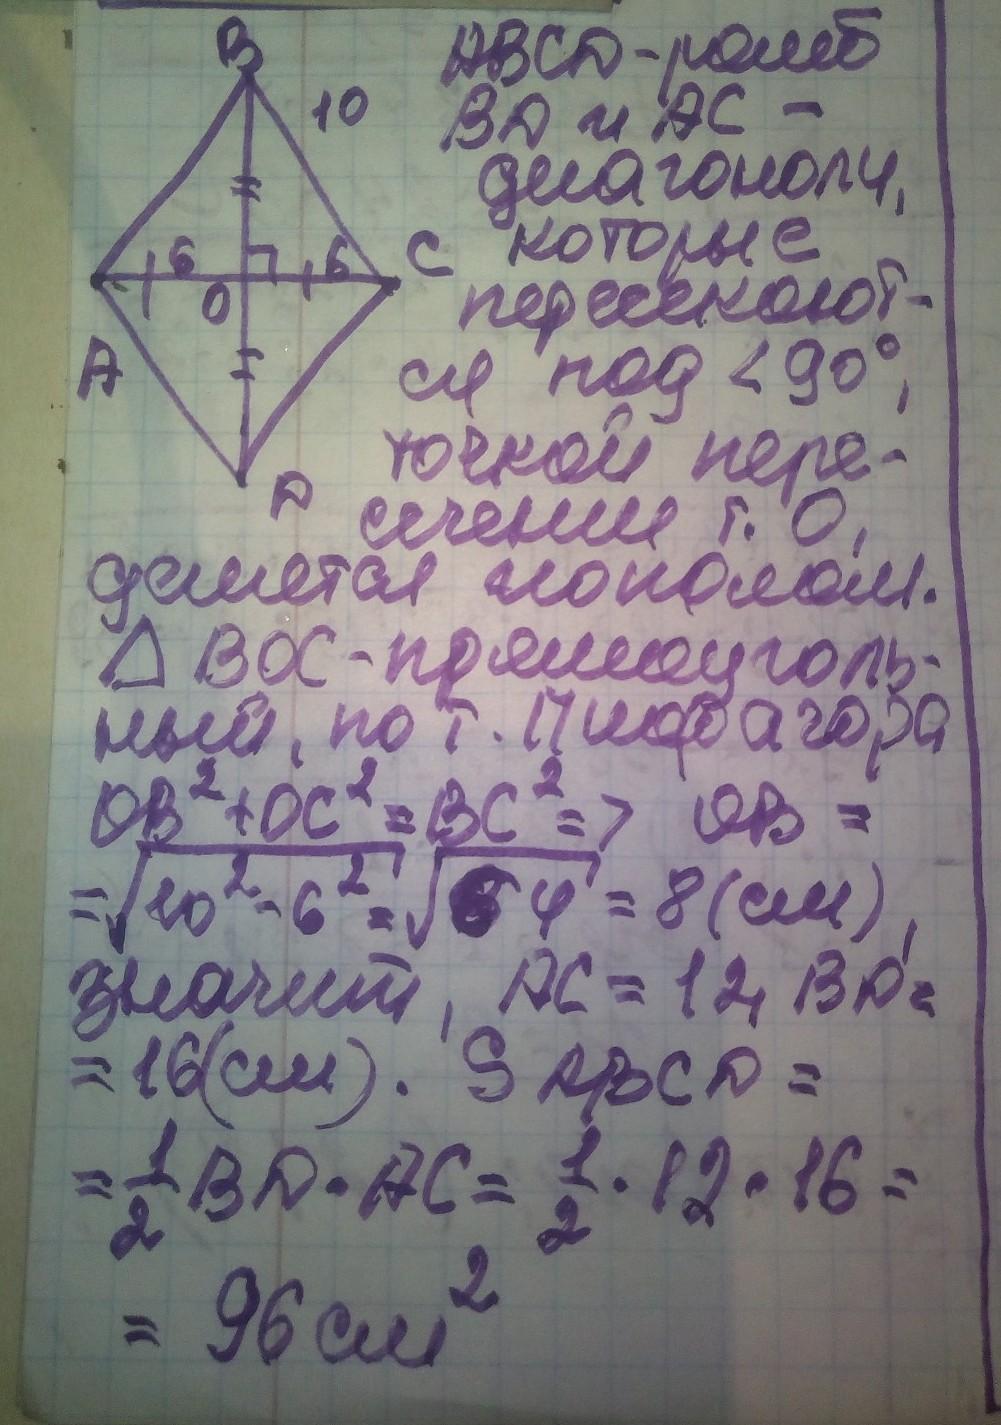 B
10
6
6
C
O
A
D
ABCD-ромб
BD и AC -
диагонали,
которые
пересекают-
ся под <90°,
точкой пере-
сечении т. O,
делются пополам.
△ BOC-прямоуголь-
ный, по т. Пифагора
OB²+OC²=BC²=> OB =
=√10²-6²=√64 = 8(см),
значит, AC = 12, BD =
= 16(см). S ABCD =
= 1/2 BD · AC = 1/2 · 12 · 16 =
= 96 см²